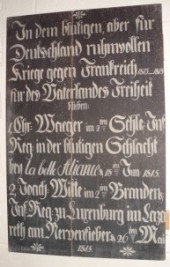 In dem blutigen, aber für
Deutschland ruhmvollen
Kriege gegen Frankreich
für des Vaterlandes Freiheit
blieben:
1, Chr. Waeger im 2ten Schles: Inf:
Reg: in der blutigen Schlacht
bey la belle Alliance d. 18ten Jun 1815.
2, Joach: Witte im 2ten Branden:
Inf: Reg: zu Luxenburg im Laza
reth am Nervenfieber d. 26ten Mai
1815.